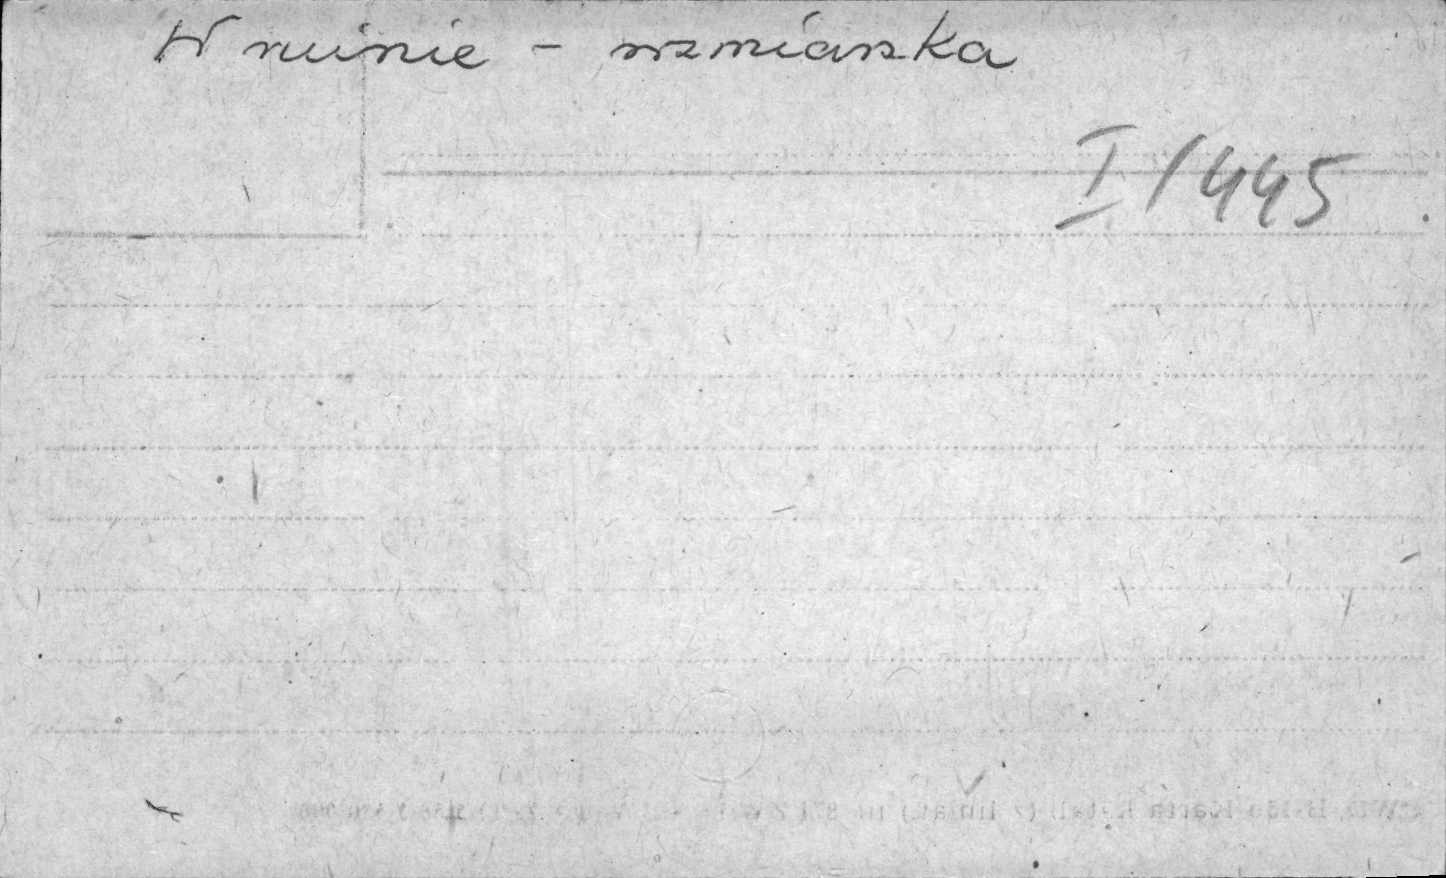 W ruinie - wzmianka
I/445